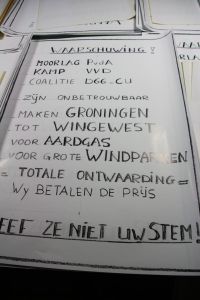 WAARSCHUWING !
MOORLAG PvdA
KAMP VVD
COALITIE D66_CU
ZIJN ONBETROUWBAAR
MAKEN GRONINGEN
TOT WINGEWEST
VOOR AARDGAS
VOOR GROTE WINDPARKEN
= TOTALE ONTWAARDING =
WY BETALEN DE PRIJS
EEF ZE NIET UW STEM!